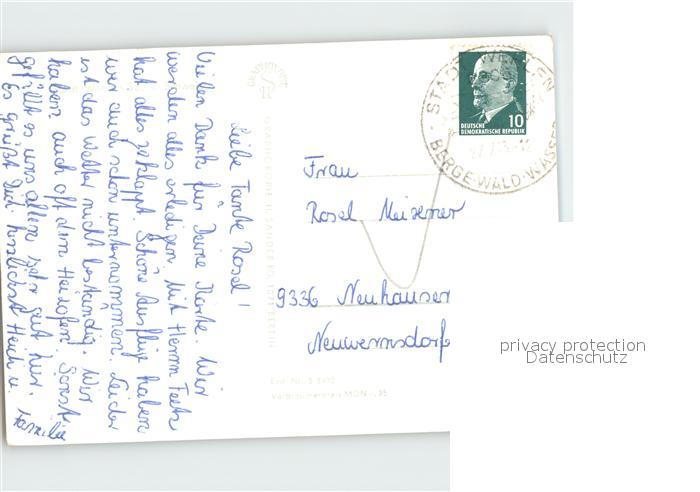 Liebe Tante Rosel!
Vielen Dank für Deine Karte. Wir
werden alles erledigen. Mit Herrn Fects
hat alles geklappt. Schöne Ausflüge haben
wir auch schon unternommen. Leider
ist das Wetter nicht beständig. Wir
haben auch oft den Heizofen. Sonst
gefällt es uns allen sehr gut hier.
Es grüßt Dich herzlichst Heidi u. Familie
Frau
Rosel Meisemer
9336 Neuhauser
Neuwernsdorf
DEUTSCHE
DEMOKRATISCHE REPUBLIK
10
STADT
BERGE-WALD-WASSER
1021 BERLIN
Verbraucherpreis MDN -,35
privacy protection
Datenschutz